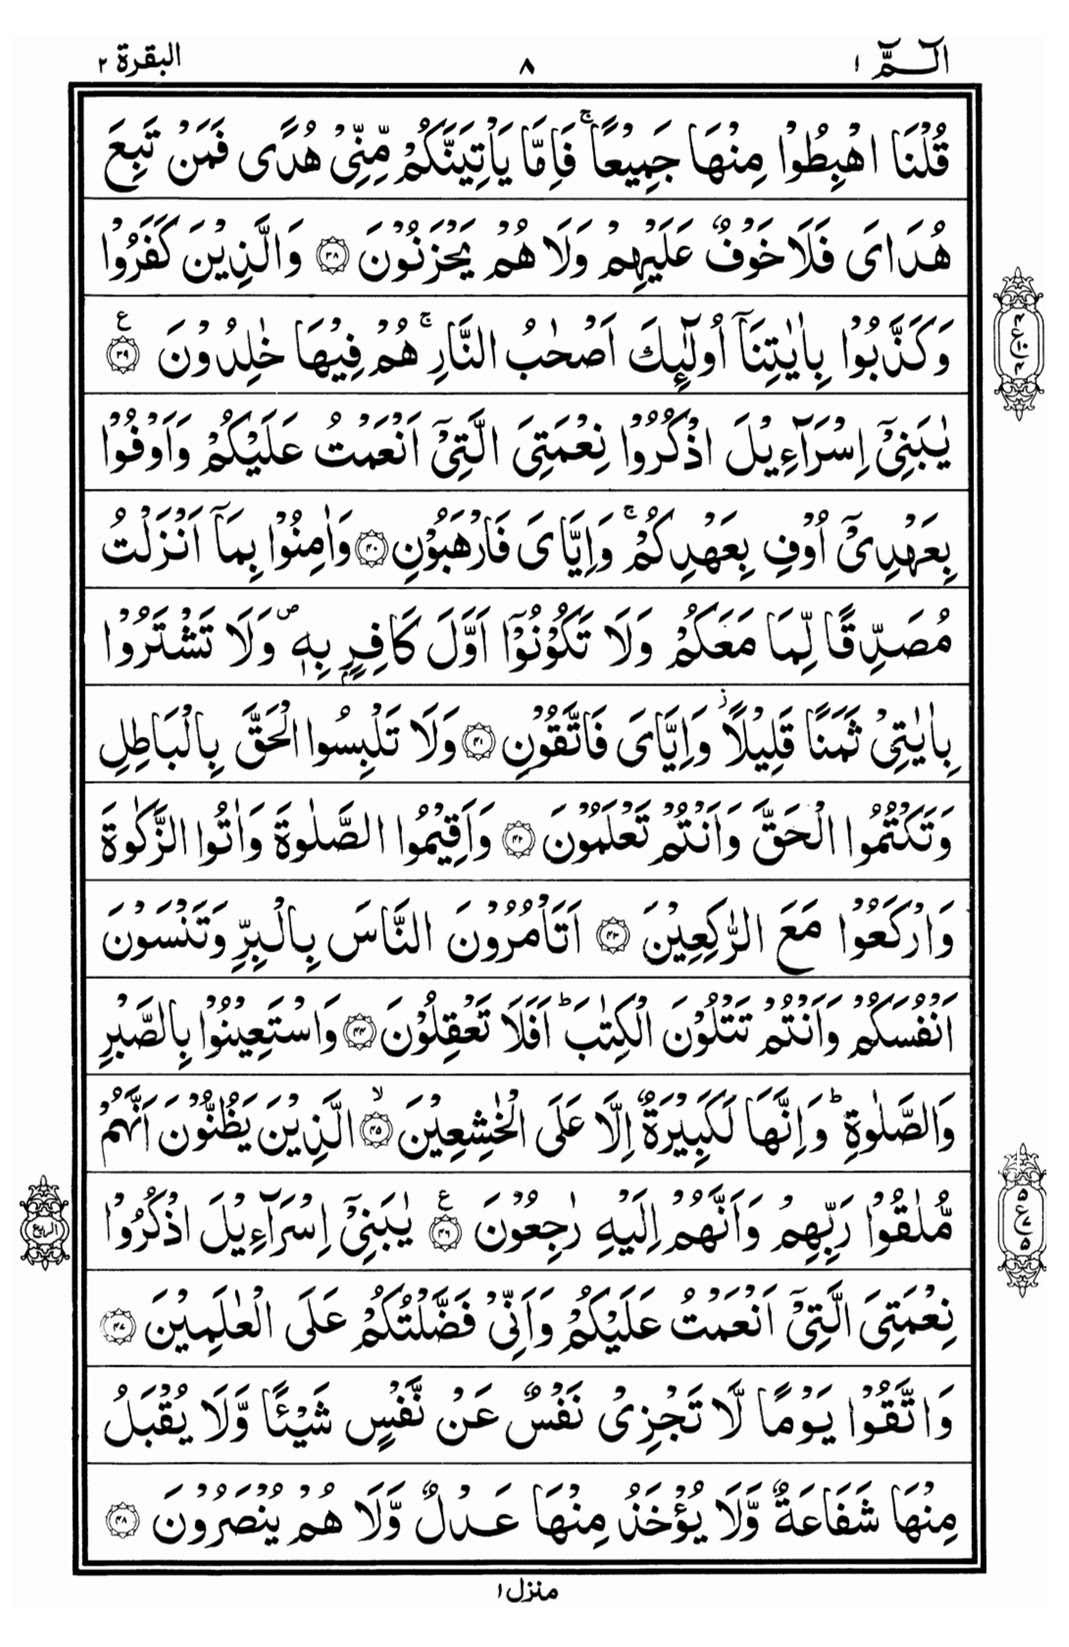 الٓمّٓ ۱ ۸ البقرة ۲
قُلْنَا اهْبِطُوْا مِنْهَا جَمِيْعًا ۚ فَاِمَّا يَاْتِيَنَّكُمْ مِّنِّىْ هُدًى فَمَنْ تَبِعَ
هُدَاىَ فَلَا خَوْفٌ عَلَيْهِمْ وَلَا هُمْ يَحْزَنُوْنَ ﴿۳۸﴾ وَالَّذِيْنَ كَفَرُوْا
وَكَذَّبُوْا بِاٰيٰتِنَآ اُولٰٓئِكَ اَصْحٰبُ النَّارِ ۚ هُمْ فِيْهَا خٰلِدُوْنَ ﴿۳۹﴾ ع
۴ ع۱۰ ۴
يٰبَنِىْٓ اِسْرَآءِيْلَ اذْكُرُوْا نِعْمَتِىَ الَّتِىْٓ اَنْعَمْتُ عَلَيْكُمْ وَاَوْفُوْا
بِعَهْدِىْٓ اُوْفِ بِعَهْدِكُمْ ۚ وَاِيَّاىَ فَارْهَبُوْنِ ﴿۴۰﴾ وَاٰمِنُوْا بِمَآ اَنْزَلْتُ
مُصَدِّقًا لِّمَا مَعَكُمْ وَلَا تَكُوْنُوْٓا اَوَّلَ كَافِرٍۭ بِهٖ ۖ وَلَا تَشْتَرُوْا
بِاٰيٰتِىْ ثَمَنًا قَلِيْلًا ؗ وَاِيَّاىَ فَاتَّقُوْنِ ﴿۴۱﴾ وَلَا تَلْبِسُوا الْحَقَّ بِالْبَاطِلِ
وَتَكْتُمُوا الْحَقَّ وَاَنْتُمْ تَعْلَمُوْنَ ﴿۴۲﴾ وَاَقِيْمُوا الصَّلٰوةَ وَاٰتُوا الزَّكٰوةَ
وَارْكَعُوْا مَعَ الرّٰكِعِيْنَ ﴿۴۳﴾ اَتَاْمُرُوْنَ النَّاسَ بِالْبِرِّ وَتَنْسَوْنَ
اَنْفُسَكُمْ وَاَنْتُمْ تَتْلُوْنَ الْكِتٰبَ ؕ اَفَلَا تَعْقِلُوْنَ ﴿۴۴﴾ وَاسْتَعِيْنُوْا بِالصَّبْرِ
وَالصَّلٰوةِ ؕ وَاِنَّهَا لَكَبِيْرَةٌ اِلَّا عَلَى الْخٰشِعِيْنَ ۙ﴿۴۵﴾ الَّذِيْنَ يَظُنُّوْنَ اَنَّهُمْ
مُّلٰقُوْا رَبِّهِمْ وَاَنَّهُمْ اِلَيْهِ رٰجِعُوْنَ ﴿۴۶﴾ ع يٰبَنِىْٓ اِسْرَآءِيْلَ اذْكُرُوْا
۵ ع۷ ۵
الربع
نِعْمَتِىَ الَّتِىْٓ اَنْعَمْتُ عَلَيْكُمْ وَاَنِّىْ فَضَّلْتُكُمْ عَلَى الْعٰلَمِيْنَ ﴿۴۷﴾
وَاتَّقُوْا يَوْمًا لَّا تَجْزِىْ نَفْسٌ عَنْ نَّفْسٍ شَيْئًا وَّلَا يُقْبَلُ
مِنْهَا شَفَاعَةٌ وَّلَا يُؤْخَذُ مِنْهَا عَدْلٌ وَّلَا هُمْ يُنْصَرُوْنَ ﴿۴۸﴾
منزل ۱